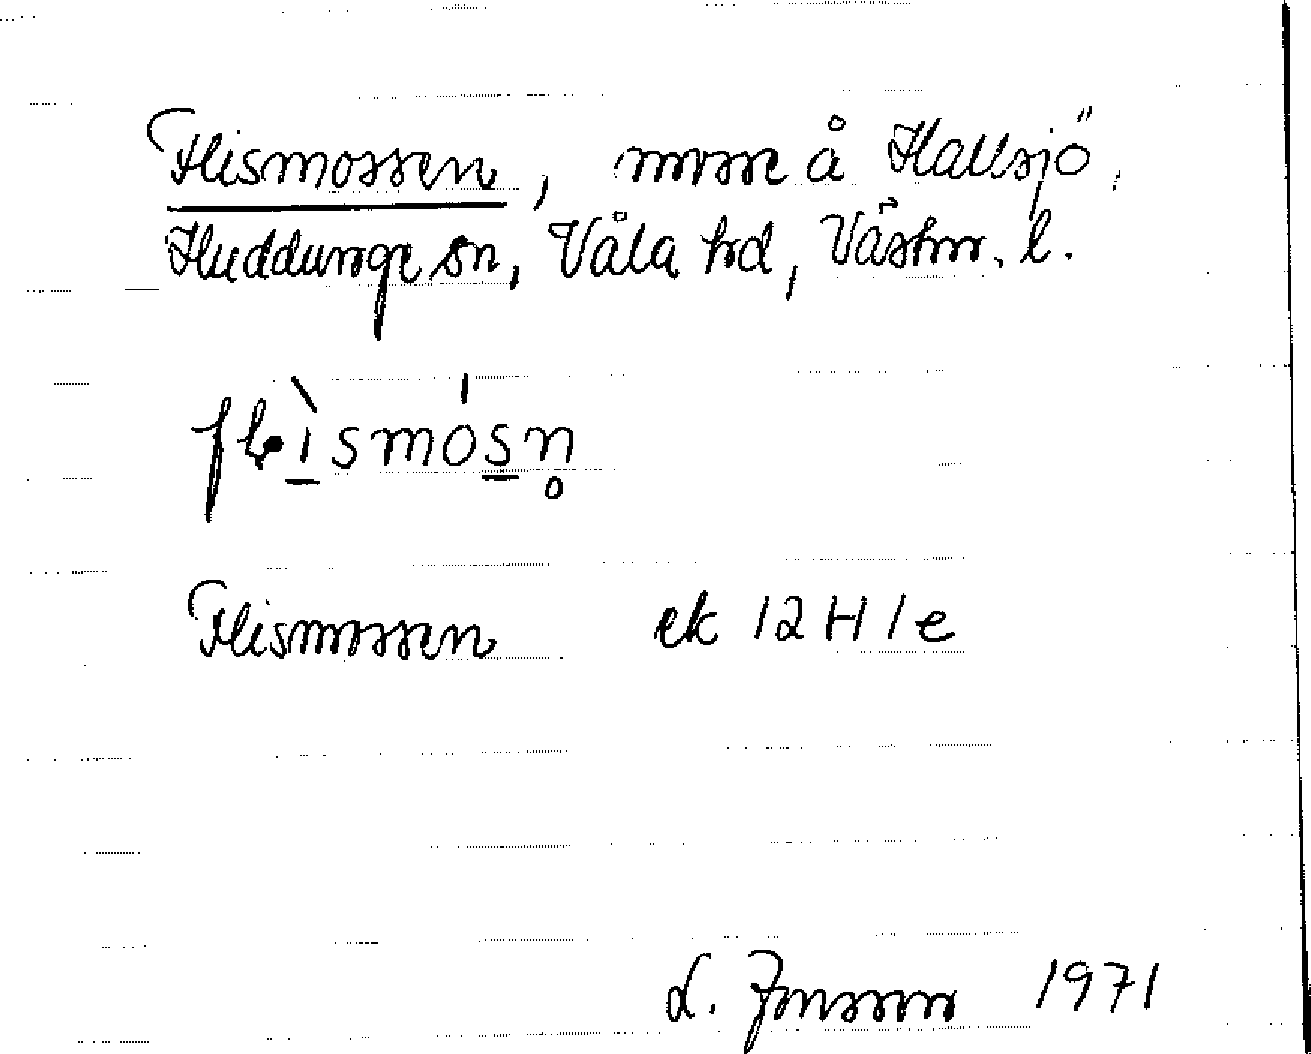 Flismossen, mosse å Hallsjö,
Huddunge sn, Våla hd, Västm. l.
flìsmósn̥
Flismossen ek 12H1e
L. Jonsson 1971